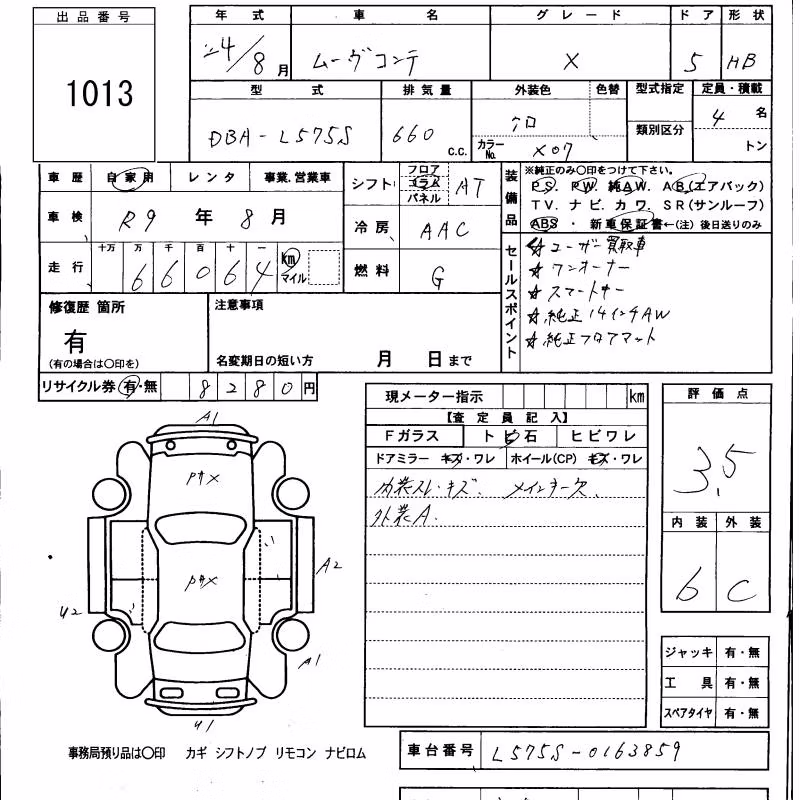 出品番号
1013
年式 車名 グレード ドア 形状
24/8月 ムーヴコンテ X 5 HB
型式 排気量 外装色 色替 型式指定 定員・積載
DBA-L575S 660 c.c. カラーNo. X07 類別区分 4 名
トン
車歴 自家用 レンタ 事業.営業車
シフト フロア コラム パネル AT
装備品 ※純正のみ○印をつけて下さい。
PS. PW. 純AW. AB.(エアバック)
TV. ナビ. カワ. SR(サンルーフ)
ABS ・ 新車保証書←(注) 後日送りのみ
車検 R9 年 8 月
冷房 AAC
走行 十万 万 千 百 十 一
66064 km マイル
燃料 G
セールスポイント
☆ユーザー買取車
☆ワンオーナー
☆スマートキー
☆純正14インチAW
☆純正フロアマット
修復歴 箇所
有
(有の場合は○印を)
注意事項
名変期日の短い方 月 日まで
リサイクル券 有・無 8280円
現メーター指示 km
【査定員記入】
Fガラス トビ石 ヒビワレ
ドアミラー キズ・ワレ ホイール(CP) キズ・ワレ
内装スレ・キズ. メインキー欠.
外装A.
評価点
3.5
内装 外装
6 C
ジャッキ 有・無
工具 有・無
スペアタイヤ 有・無
A1
A2
A1
事務局預り品は○印 カギ シフトノブ リモコン ナビロム
車台番号 L575S-0163859